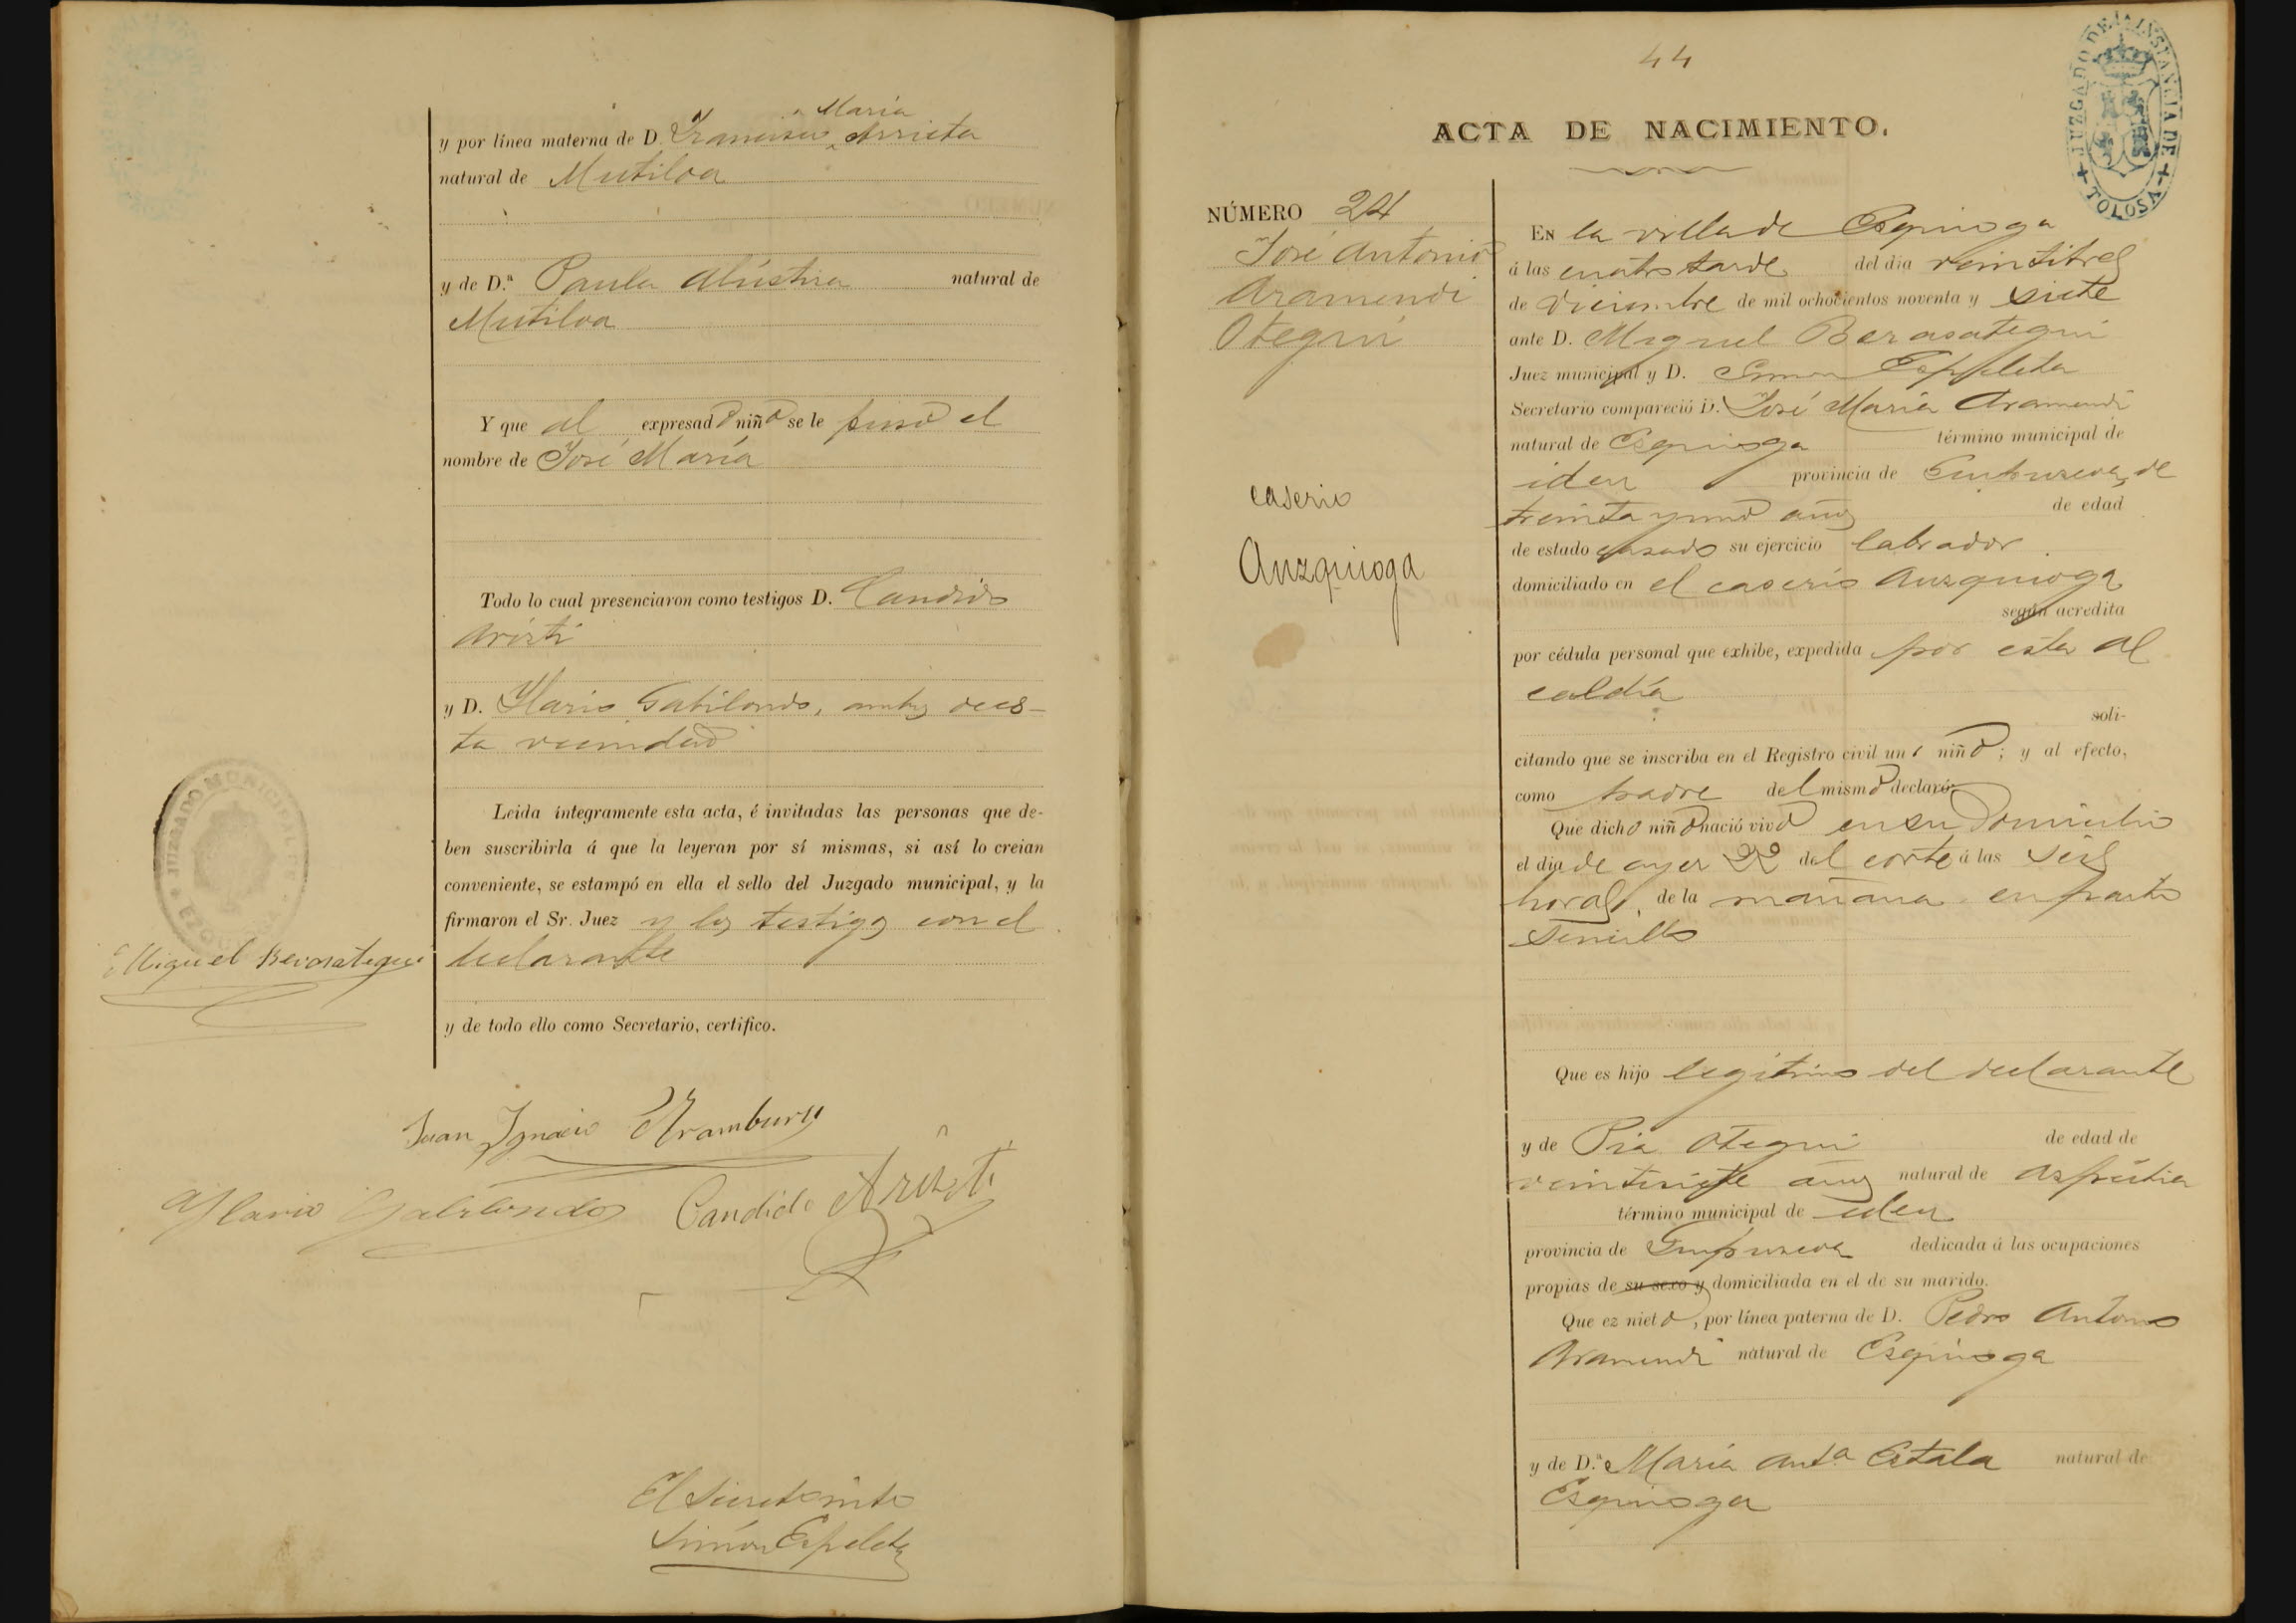 María
y por línea materna de D. Francisco Arrieta
natural de Mutiloa
y de D.ª Paula Alústiza natural de
Mutiloa
Y que al expresado niño se le puso el
nombre de José María
Todo lo cual presenciaron como testigos D. Candido
Aristi
y D. Ylario Gabilondo, ambos de es-
ta vecindad
Leida íntegramente esta acta, é invitadas las personas que de-
ben suscribirla á que la leyeran por sí mismas, si así lo creian
conveniente, se estampó en ella el sello del Juzgado municipal, y la
firmaron el Sr. Juez y los testigos con el
declarante
y de todo ello como Secretario, certifico.
JUZGADO MUNICIPAL DE EZQUIOGA
Miguel Berasategui
Juan Ygnacio Aramburu
Ylario Gabilondo Candido Aristi
El Secretario
Simón Espeleta
44
JUZGADO DE 1.ª INSTANCIA DE TOLOSA
ACTA DE NACIMIENTO.
NÚMERO 24
José Antonio
Aramendi
Otegui
caserio
Anzquioga
En la villa de Esquioga
á las cuatro tarde del dia veintitres
de Diciembre de mil ochocientos noventa y siete
ante D. Miguel Berasategui
Juez municipal y D. Simon Espeleta
Secretario compareció D. José María Aramendi
natural de Esquioga término municipal de
iden provincia de Guipuzcoa, de
treinta y uno años de edad
de estado casado su ejercicio labrador
domiciliado en el caserio Anzquioga
según acredita
por cédula personal que exhibe, expedida por esta Al
caldía
soli-
citando que se inscriba en el Registro civil un niño; y al efecto,
como padre del mismo declaró:
Que dicho niño nació vivo en su Domicilio
el dia de ayer 22 del corte á las seis
horas, de la mañana en parto
sencillo
Que es hijo legítimo del declarante
y de Pia Otegui de edad de
veintisiete años natural de Aspeitia
término municipal de iden
provincia de Guipuzcoa dedicada á las ocupaciones
propias de su sexo y domiciliada en el de su marido.
Que ez nieto, por línea paterna de D. Pedro Antonio
Aramendi natural de Esquioga
y de D.ª María Ant.ª Estala natural de
Esquioga